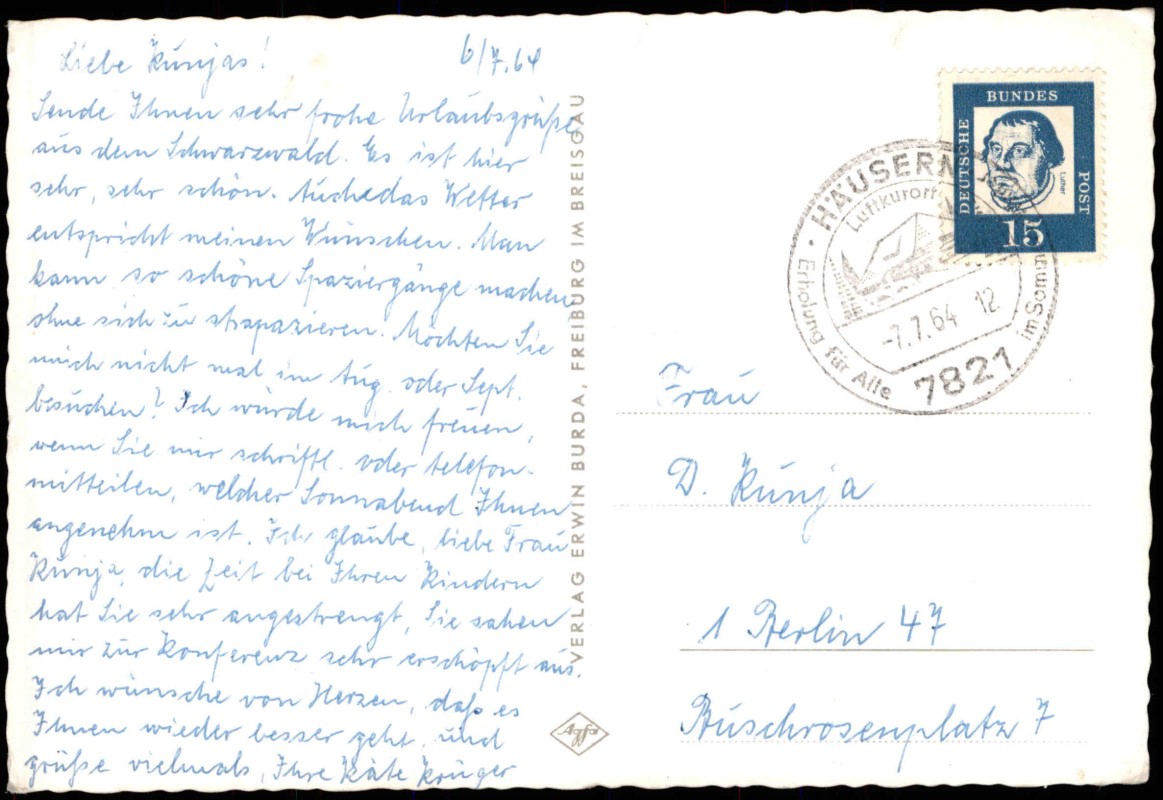 Liebe Kunjas!
6/7.64
Sende Ihnen sehr frohe Urlaubsgrüße
aus dem Schwarzwald. Es ist hier
sehr, sehr schön. Auch das Wetter
entspricht meinen Wünschen. Man
kann so schöne Spaziergänge machen
ohne sich zu strapazieren. Möchten Sie
mich nicht mal im Aug. oder Sept.
besuchen? Ich würde mich freuen,
wenn Sie mir schriftl. oder telefon.
mitteilen, welcher Sonnabend Ihnen
angenehm ist. Ich glaube, liebe Frau
Kunja, die Zeit bei Ihren Kindern
hat Sie sehr angestrengt, Sie sahen
mir zur Konferenz sehr erschöpft aus.
Ich wünsche von Herzen, daß es
Ihnen wieder besser geht, und
grüße vielmals, Ihre Käte Krüger
VERLAG ERWIN BURDA, FREIBURG IM BREISGAU
Agfa
DEUTSCHE
BUNDES
POST
Luther
15
HÄUSERN
Luftkurort
-7.7.64 12
Erholung für Alle
im Somm
7821
Frau
D. Kunja
1 Berlin 47
Buschrosenplatz 7